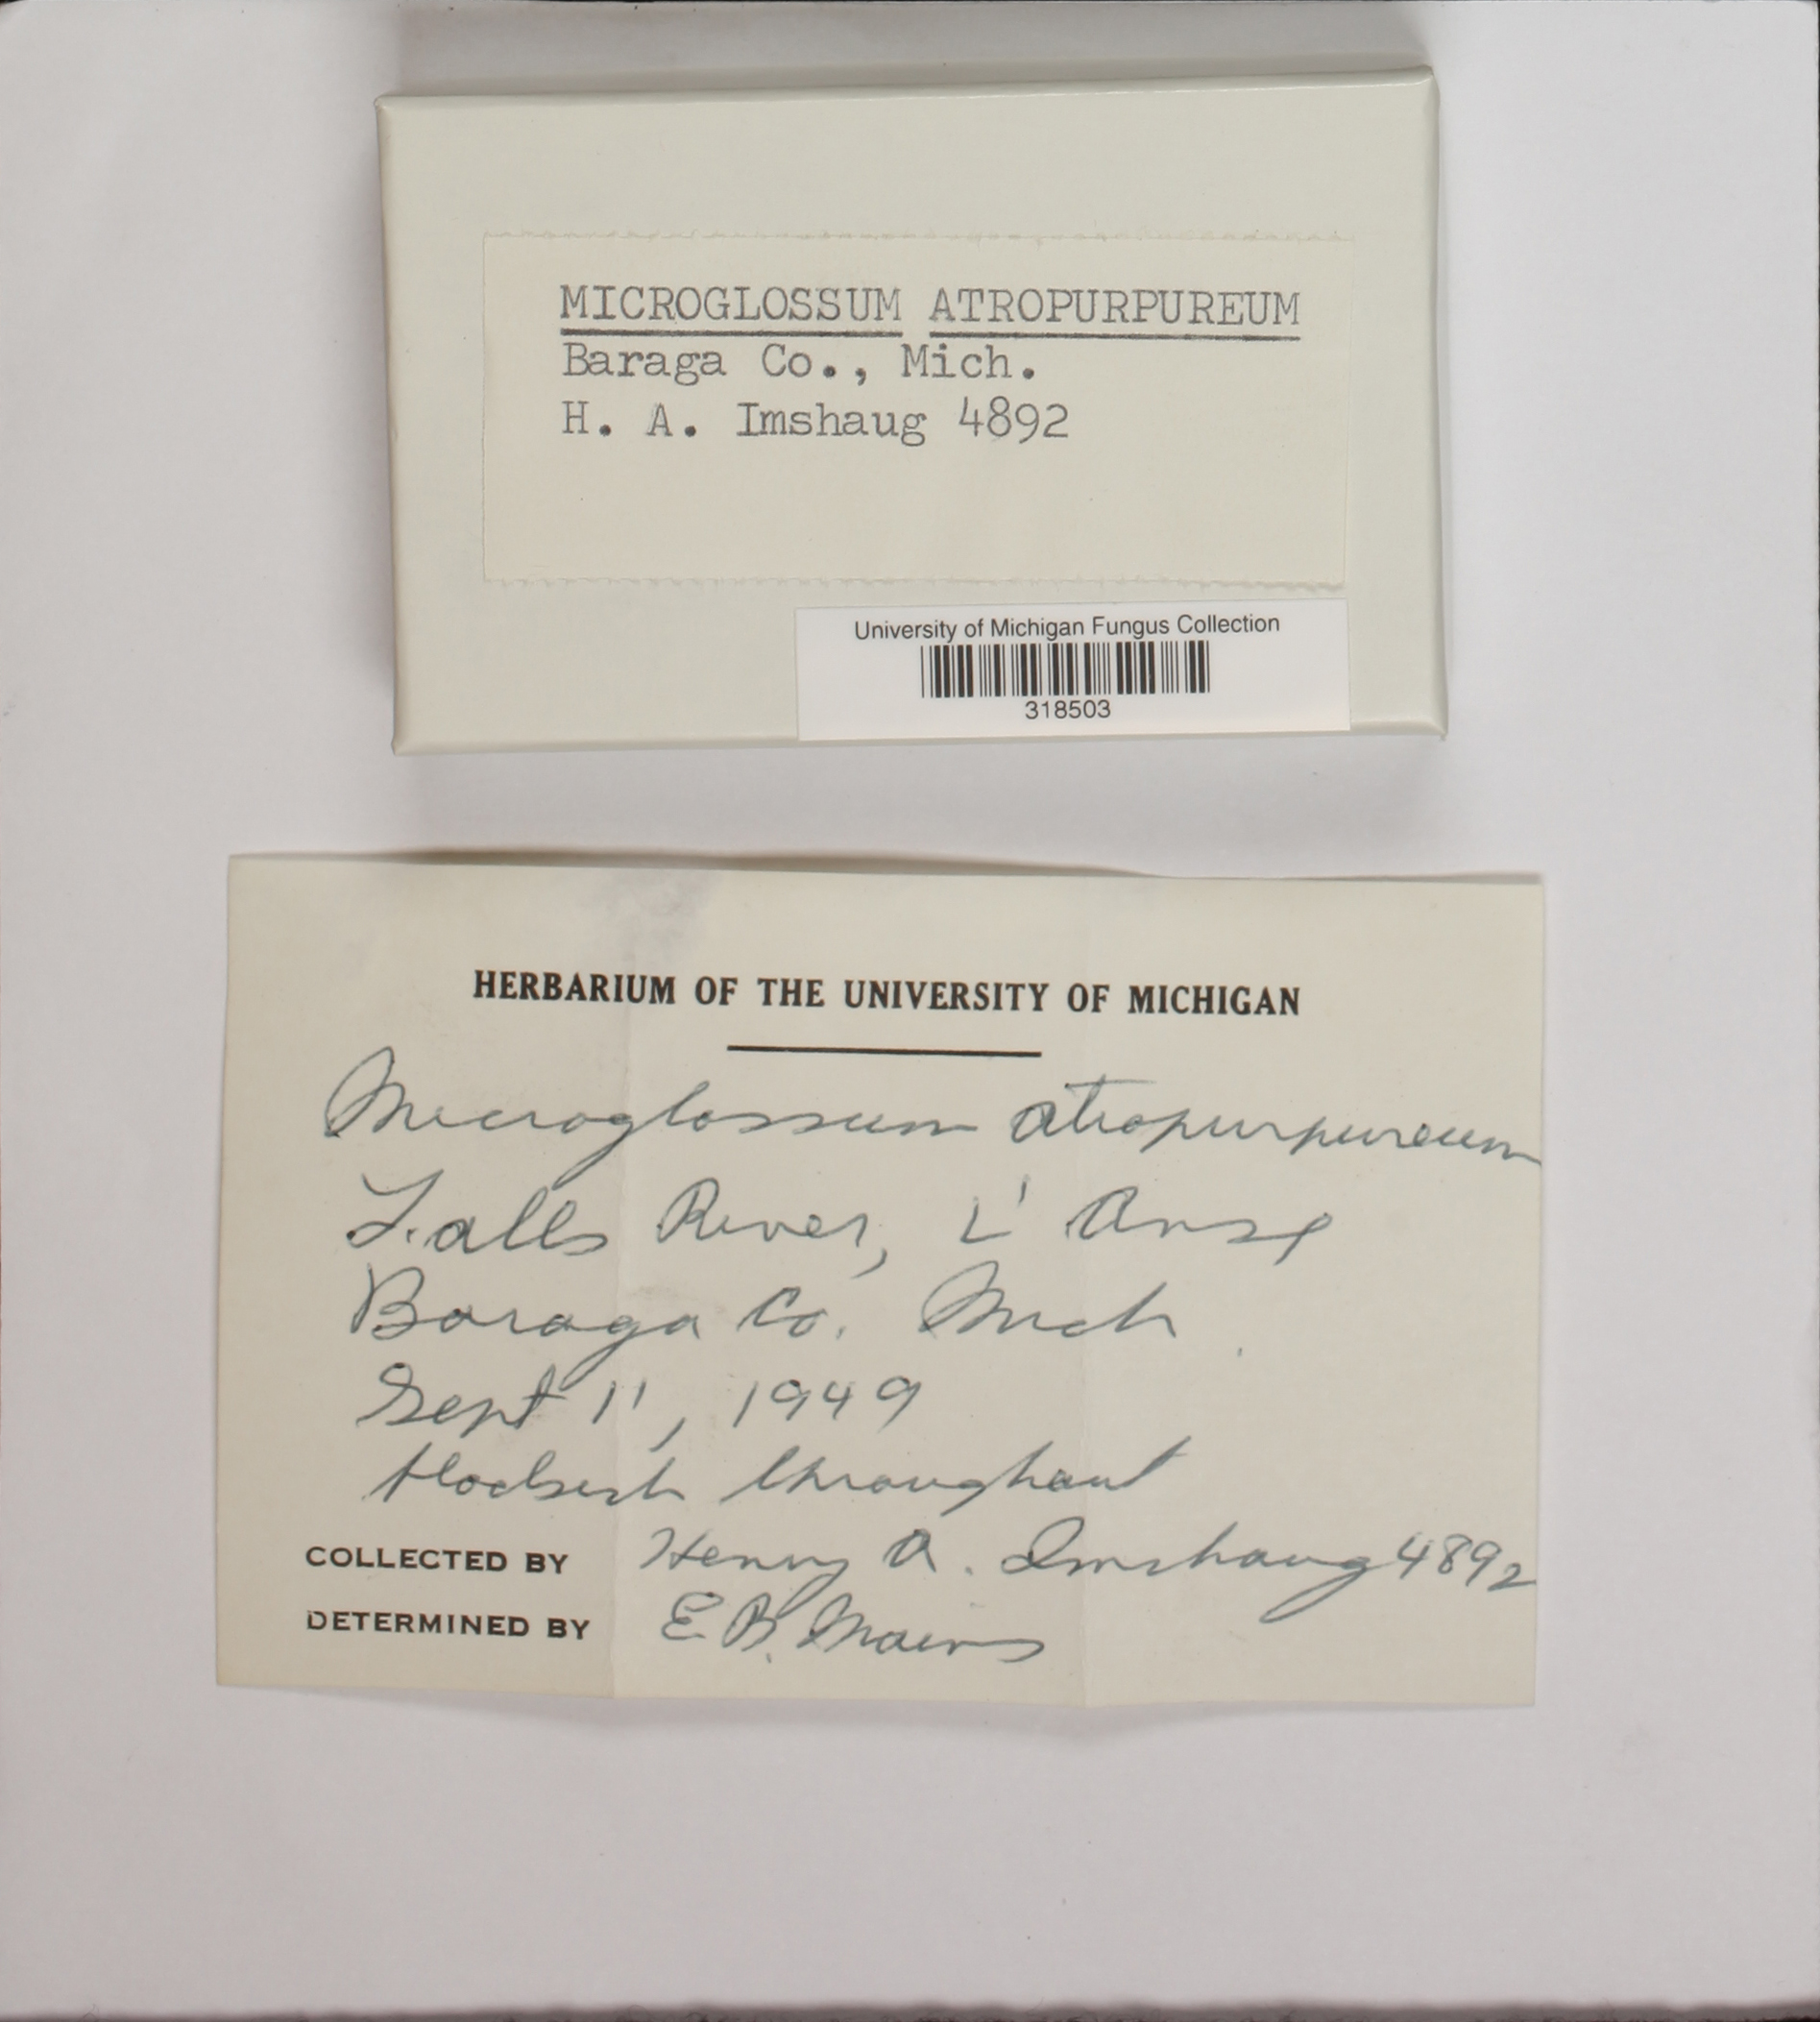 MICROGLOSSUM ATROPURPUREUM
Baraga Co., Mich.
H. A. Imshaug 4892
University of Michigan Fungus Collection
318503
HERBARIUM OF THE UNIVERSITY OF MICHIGAN
Microglossum atropurpureum
Falls River, L'Anse
Baraga Co. Mich.
Sept 11, 1949
throughout
COLLECTED BY Henry A. Imshaug 4892
DETERMINED BY E.B. Mains